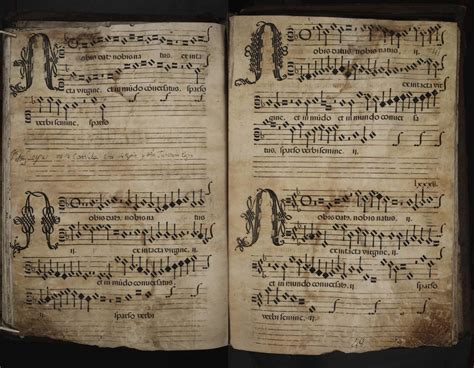 N
obis dat9 nobis na tus, ex inta
cta virgine, et in mūdo cōversatus, sparso
verbi semine, sparso
N
obis dat9, nobis na tus
ij. ex intacta virgine, ij.
et in mūdo conversatus,
ij. sparso verbi
N
obis datus, nobis natus, ij.
ex intacta vir
gine, et in mundo conver sa
tus, sparso verbi semine. ij.
lxxxij.
N
obis datus, nobis natus,
ij. ex intacta virgine, ij.
et in mūdo conversat9, ij. sparso
verbi semine. ij.